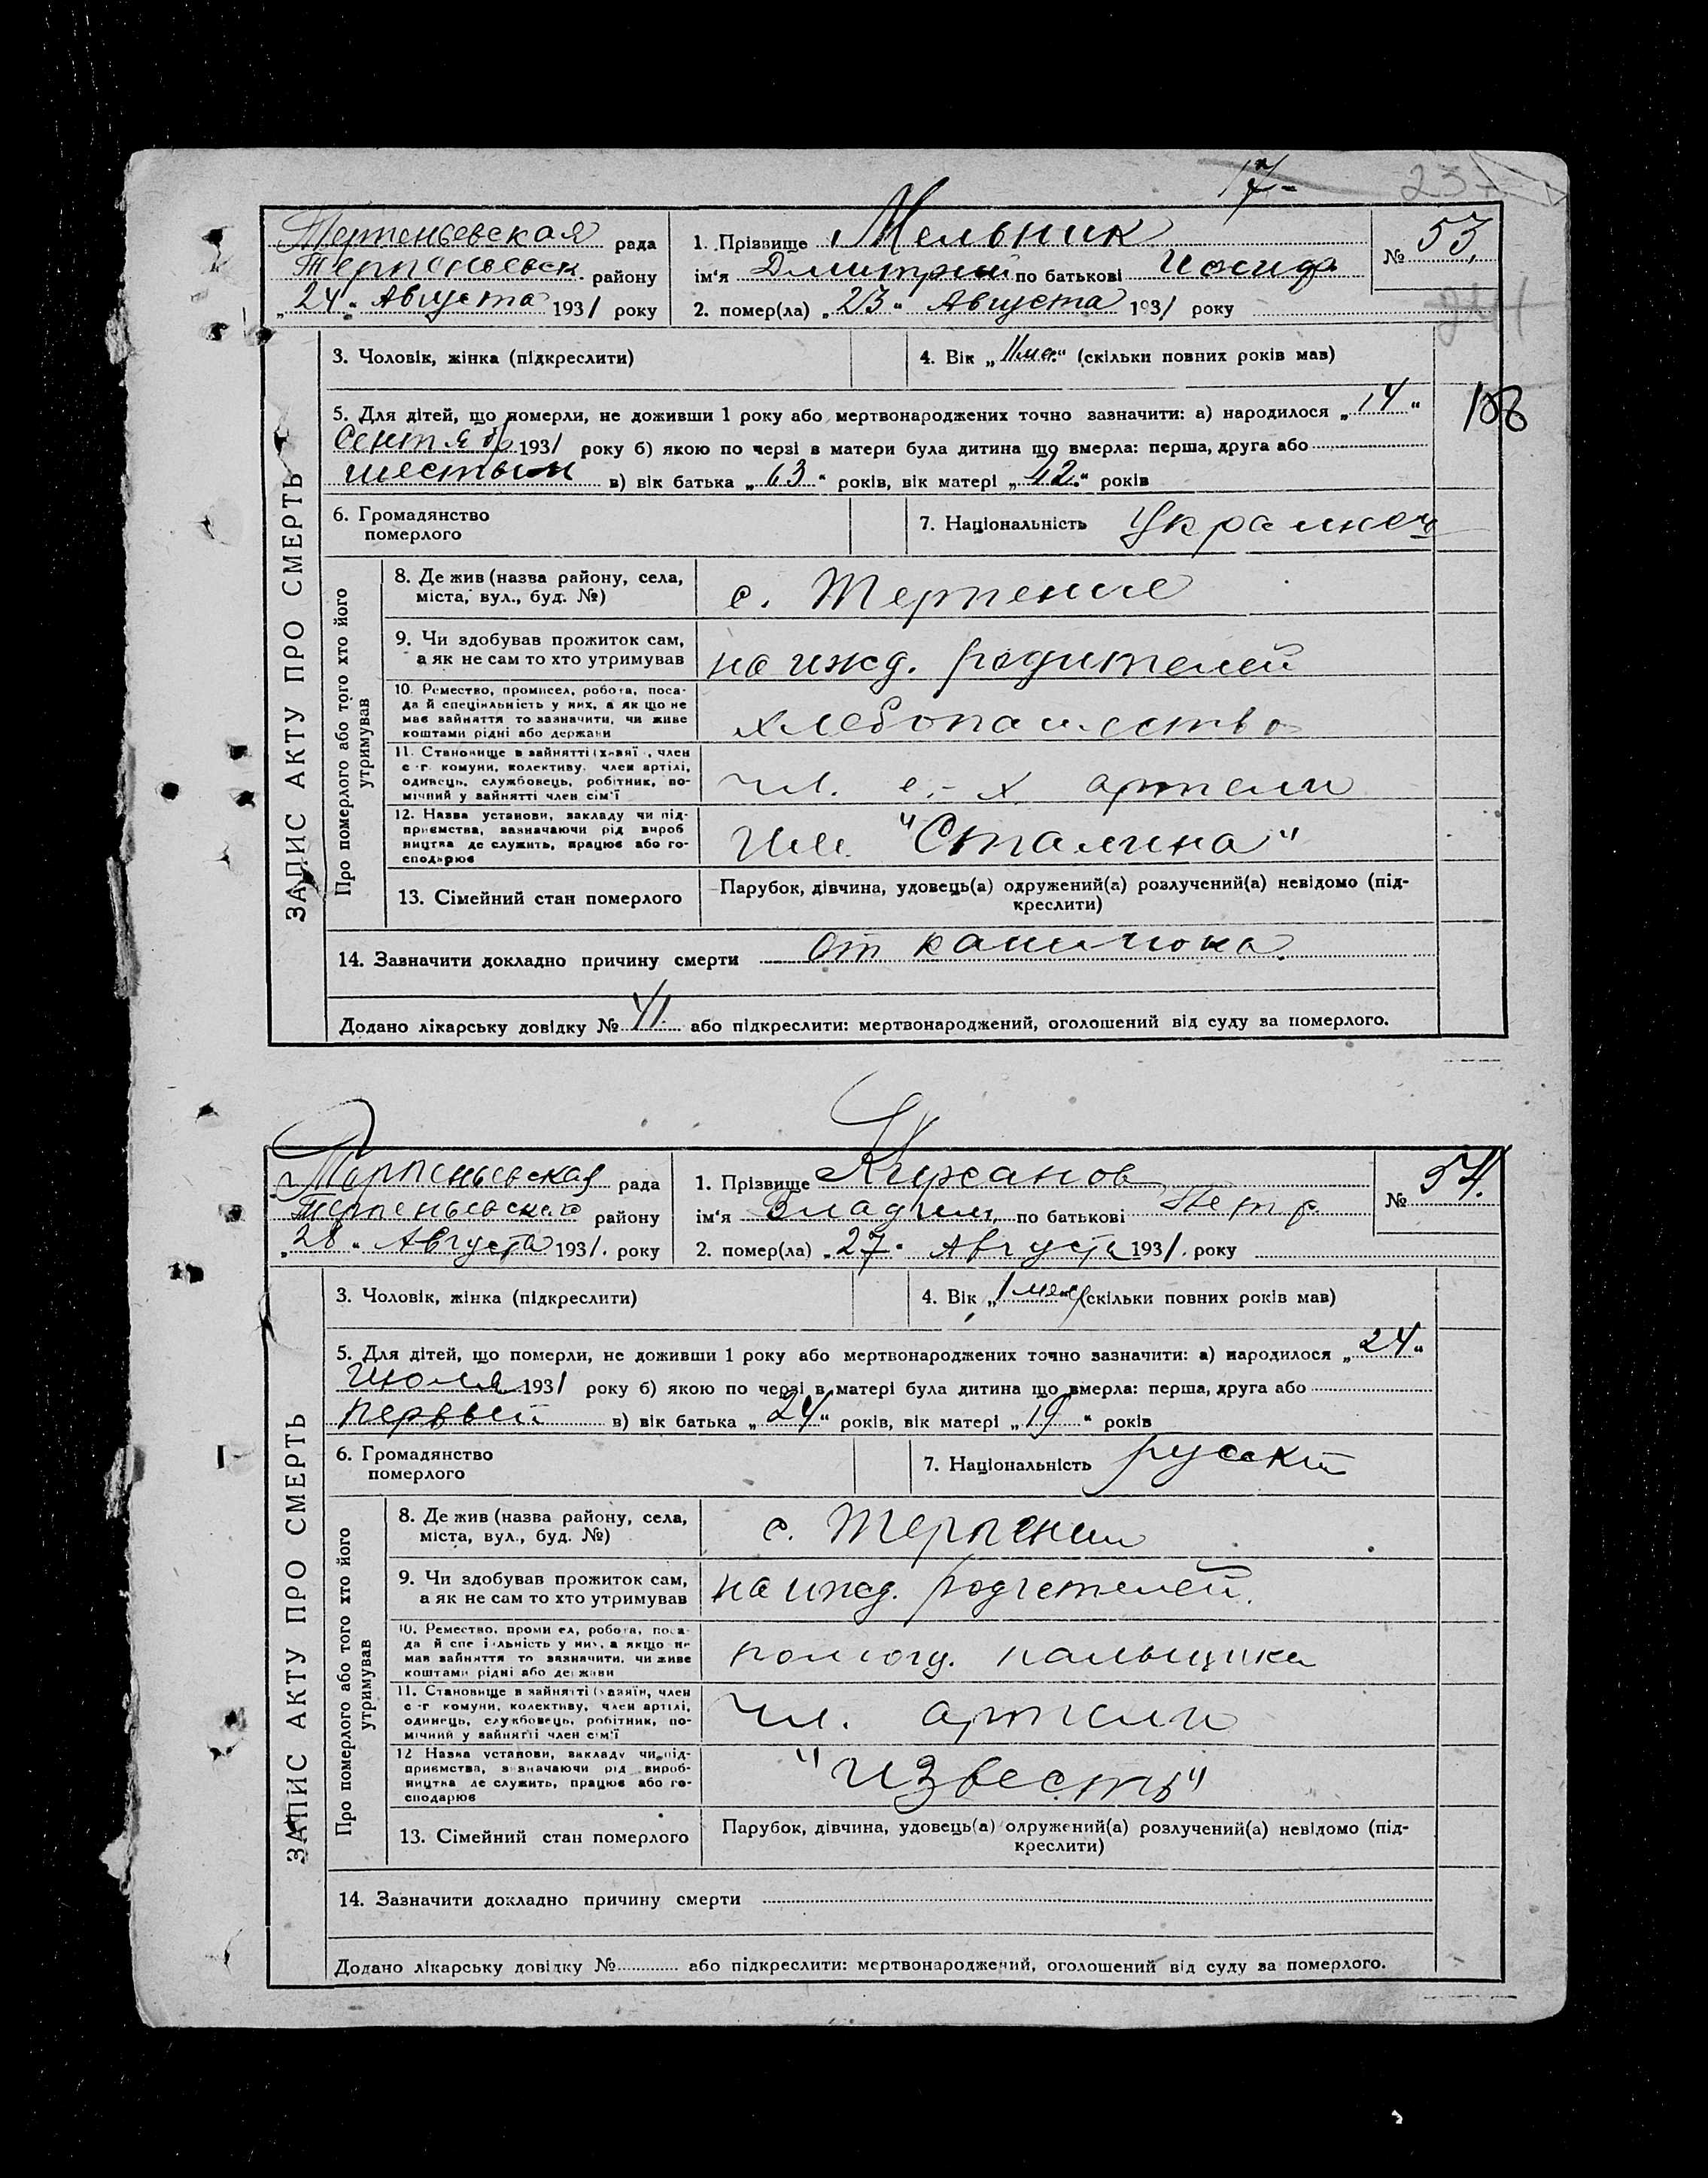 17-
23
Терпеньевская рада 1. Прізвище Мельник № 53.
Терпеньевск. району ім'я Дмитрий по батькові Иосиф
„24“ Августа 1931 року 2. помер(ла) „23“ Августа 1931 року
ЗАПИС АКТУ ПРО СМЕРТЬ
3. Чоловік, жінка (підкреслити) 4. Вік „11 ме.“ (скільки повних років мав)
5. Для дітей, що померли, не доживши 1 року або мертвонароджених точно зазначити: а) народилося „14“
108
Сентябр 1931 року б) якою по черзі в матери була дитина що вмерла: перша, друга або
шестым в) вік батька „63“ років, вік матері „42“ років
6. Громадянство 7. Національність Украинец
померлого
Про померлого або того хто його утримував
8. Де жив (назва району, села,
міста, вул., буд. №) с. Терпение
9. Чи здобував прожиток сам,
а як не сам то хто утримував на ижд. родителей
10. Ремество, промисел, робота, поса-
да й спеціяльність у них, а як що не
має зайняття то зазначити, чи живе
коштами рідні або держави хлебопашество
11. Становище в зайнятті (хазяї , член
с-г. комуни, колективу, член артілі,
одинець, службовець, робітник, по-
мічний у зайнятті член сім'ї чл. с.-х. артели
12. Назва установи, закладу чи під-
приємства, зазначаючи рід вироб
ництва де служить, працює або го-
сподарює Им. "Сталина"
13. Сімейний стан померлого Парубок, дівчина, удовець(а) одружений(а) розлучений(а) невідомо (під-
креслити)
14. Зазначити докладно причину смерти от кашлюка
Додано лікарську довідку № 41 або підкреслити: мертвонароджений, оголошений від суду за померлого.
Терпеньевская рада 1. Прізвище № 54.
Терпеньевского району ім'я Владим. по батькові Петр.
„28“ Августа 1931. року 2. помер(ла) „27“ Августа 1931. року
ЗАПИС АКТУ ПРО СМЕРТЬ
3. Чоловік, жінка (підкреслити) 4. Вік „1 мес“ (скільки повних років мав)
5. Для дітей, що померли, не доживши 1 року або мертвонароджених точно зазначити: а) народилося „24“
Июля 1931 року б) якою по черзі в матері була дитина що вмерла: перша, друга або
первый в) вік батька „24“ років, вік матері „19“ років
6. Громадянство 7. Національність русский
померлого
Про померлого або того хто його утримував
8. Де жив (назва району, села,
міста, вул., буд. №) с. Терпении
9. Чи здобував прожиток сам,
а як не сам то хто утримував на ижд. родителей.
10. Ремество, проми ел, робота, поса-
да й спе і льність у них, а якщо не
має зайняття то зазначити, чи живе
коштами рідні або держави
11. Становище в зайнятті (хазяїн, член
с-г комуни, колективу, член артілі,
одинець, службовець, робітник, по-
мічний у зайнятті член сім'ї чл. артели
12 Назва установи, закладу чи під-
приємства, зазначаючи рід вироб-
ництва де служить, працює або го-
сподарює "Известь"
13. Сімейний стан померлого Парубок, дівчина, удовець(а) одружений(а) розлучений(а) невідомо (під-
креслити)
14. Зазначити докладно причину смерти
Додано лікарську довідку № або підкреслити: мертвонароджений, оголошений від суду за померлого.